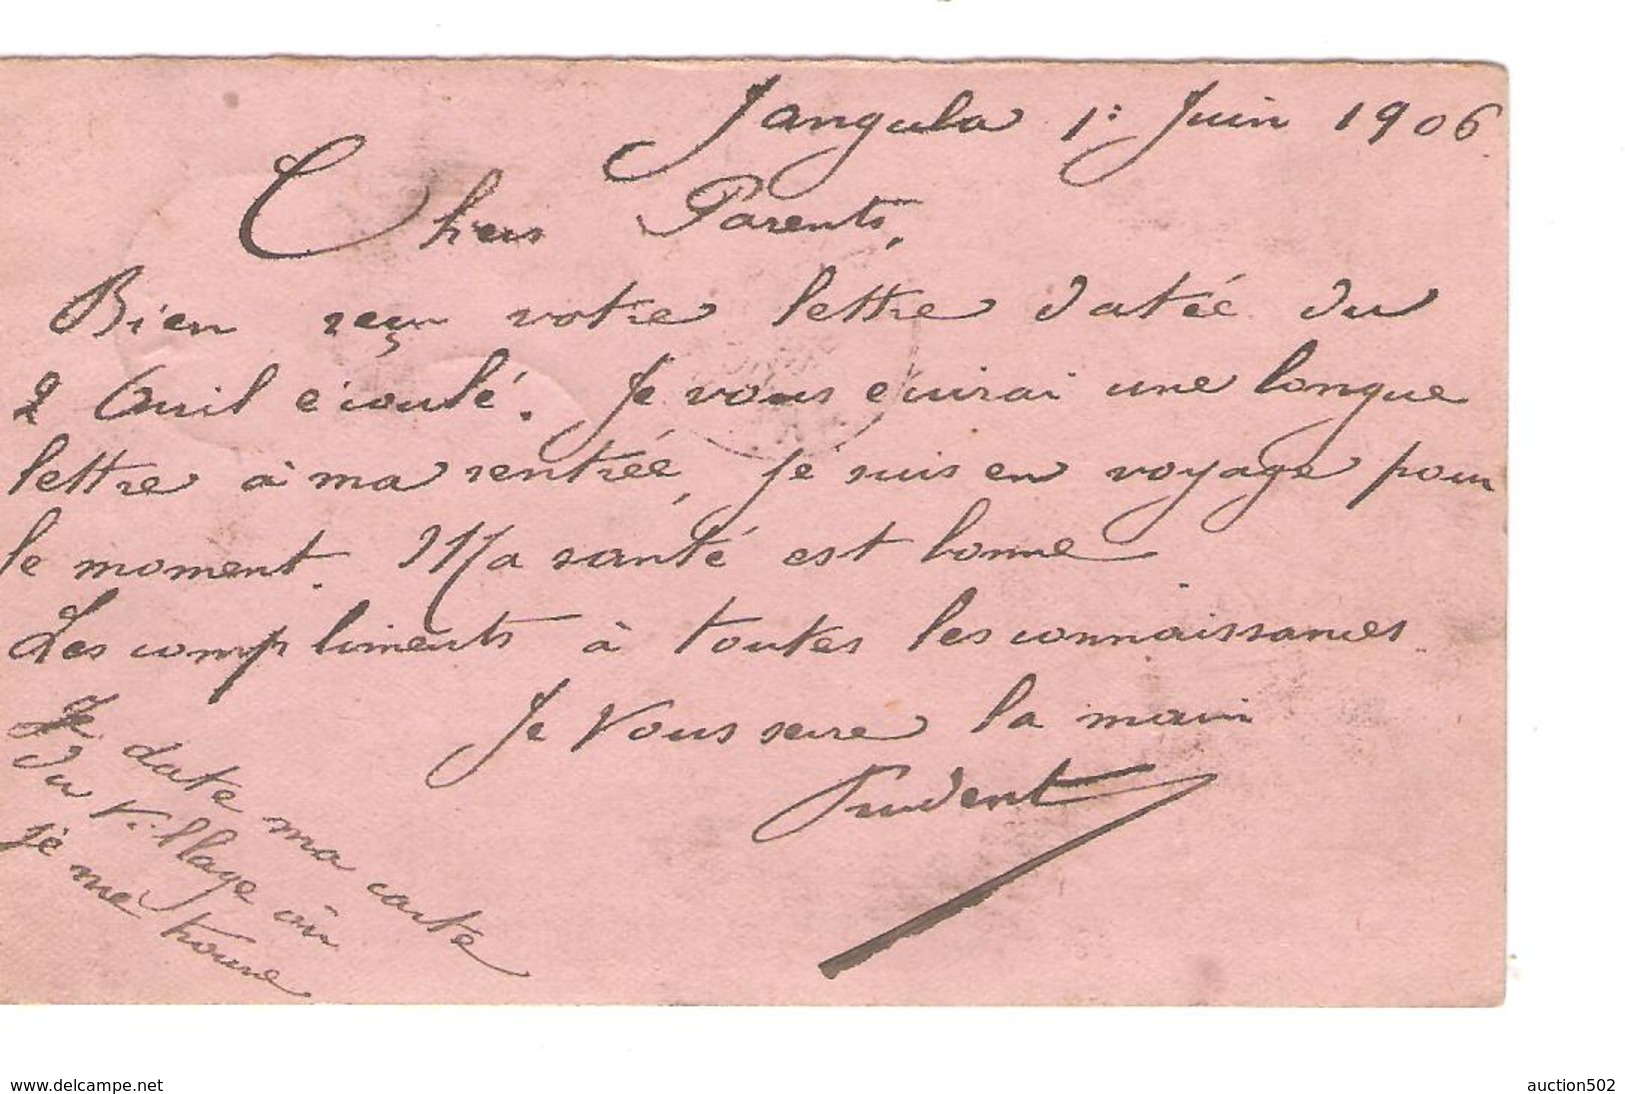 Jangula 1: Juin 1906.
Chers Parents,
Bien reçu votre lettre datée du
2 Avril écoulé. Je vous écrirai une longue
lettre à ma rentrée, je suis en voyage pour
le moment. Ma santé est bonne
Les compliments à toutes les connaissances.
Je Vous serre la main
Prudent
Je date ma carte
du Village où
je me trouve
www.delcampe.net
auction502